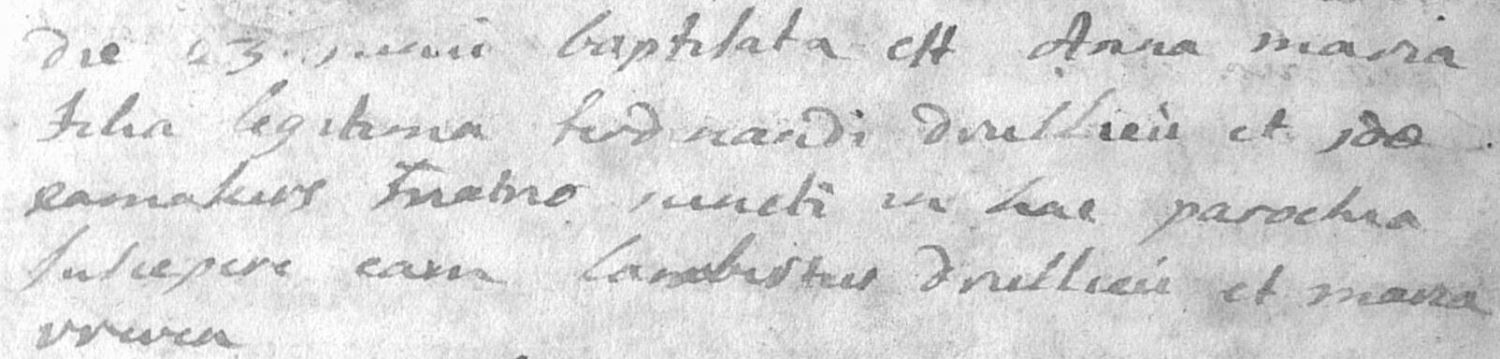 die 23 junii baptisata est Anna maria
filia legitima ferdnandi drullieu et ido
matrio juncti in hac parochia
suscepere eam lambertus drullieu et maria